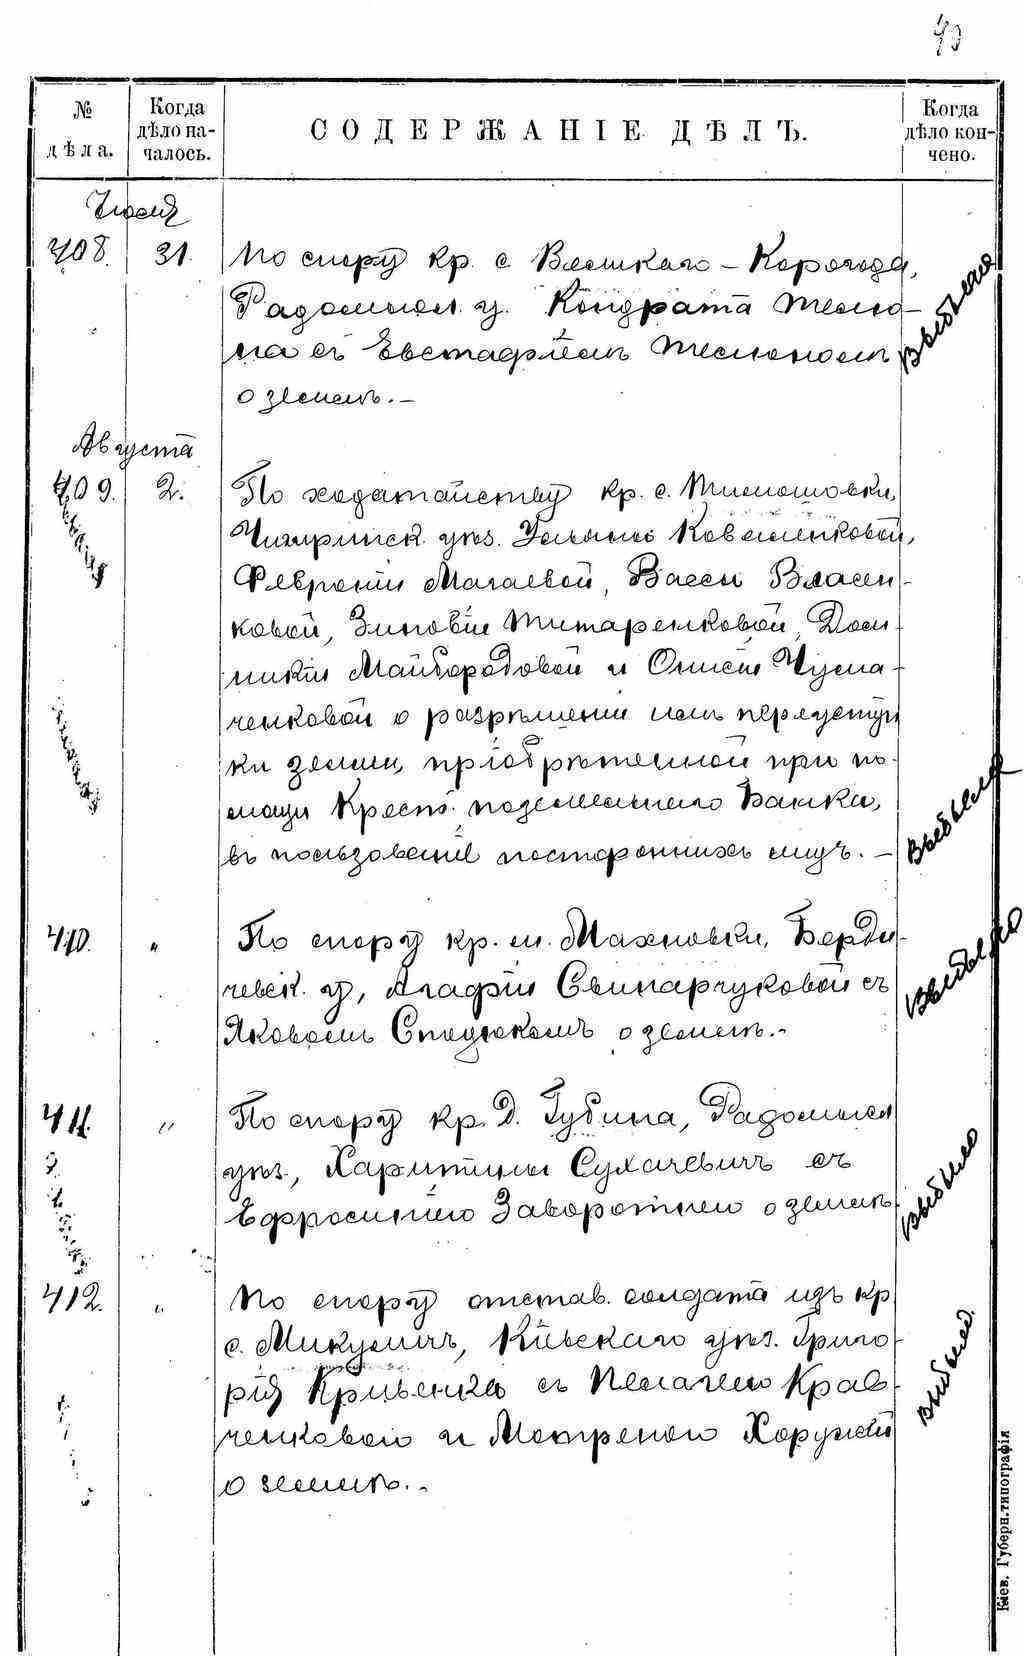 43
№
дѣла.
Когда
дѣло на-
чалось.
СОДЕРЖАНІЕ ДѢЛЪ.
Когда
дѣло кон-
чено.
Іюля
408. 31. По спору кр. с. Вял Карогода,
Радомысл. у. Кондрата Теслю-
на съ Евстафіемъ Теслюномъ
о землѣ.—
выбыла
Августа
409. 2. По ходатайству кр. с. Тимошовки,
Чигиринск. уѣз. Ульяны Коваленковой,
Февроніи Магаевой, Вассы Власен-
ковой, Зиновіи Титаренковой, Дом-
никіи Майбородовой и Онисіи Чума-
ченковой о разрѣшеніи имъ переуступ
ки земли, пріобрѣтенной при по-
мощи Крест. поземельнаго Банка,
въ пользованіе постороннихъ лицъ.—
выбыла
410. " По спору кр. м. Махновки, Берди-
чевск. у., Агафіи Свинарчуковой съ
Яковомъ о землѣ.-
выбыло
411. " По спору кр. д. Губина, Радомысл
уѣз., Харитины Сухачевичъ съ
Ефросиніею Заворотнею о землѣ.
выбыло
412. " По спору отстав. солдата изъ кр
с. Микуличъ, Кіевскаго уѣз. Григо-
рія Кривенка съ Пелагеею Крав-
ченковою и Мотреною Хоружей
о землѣ.-
выбыло.
Кіев. Губерн. типографія